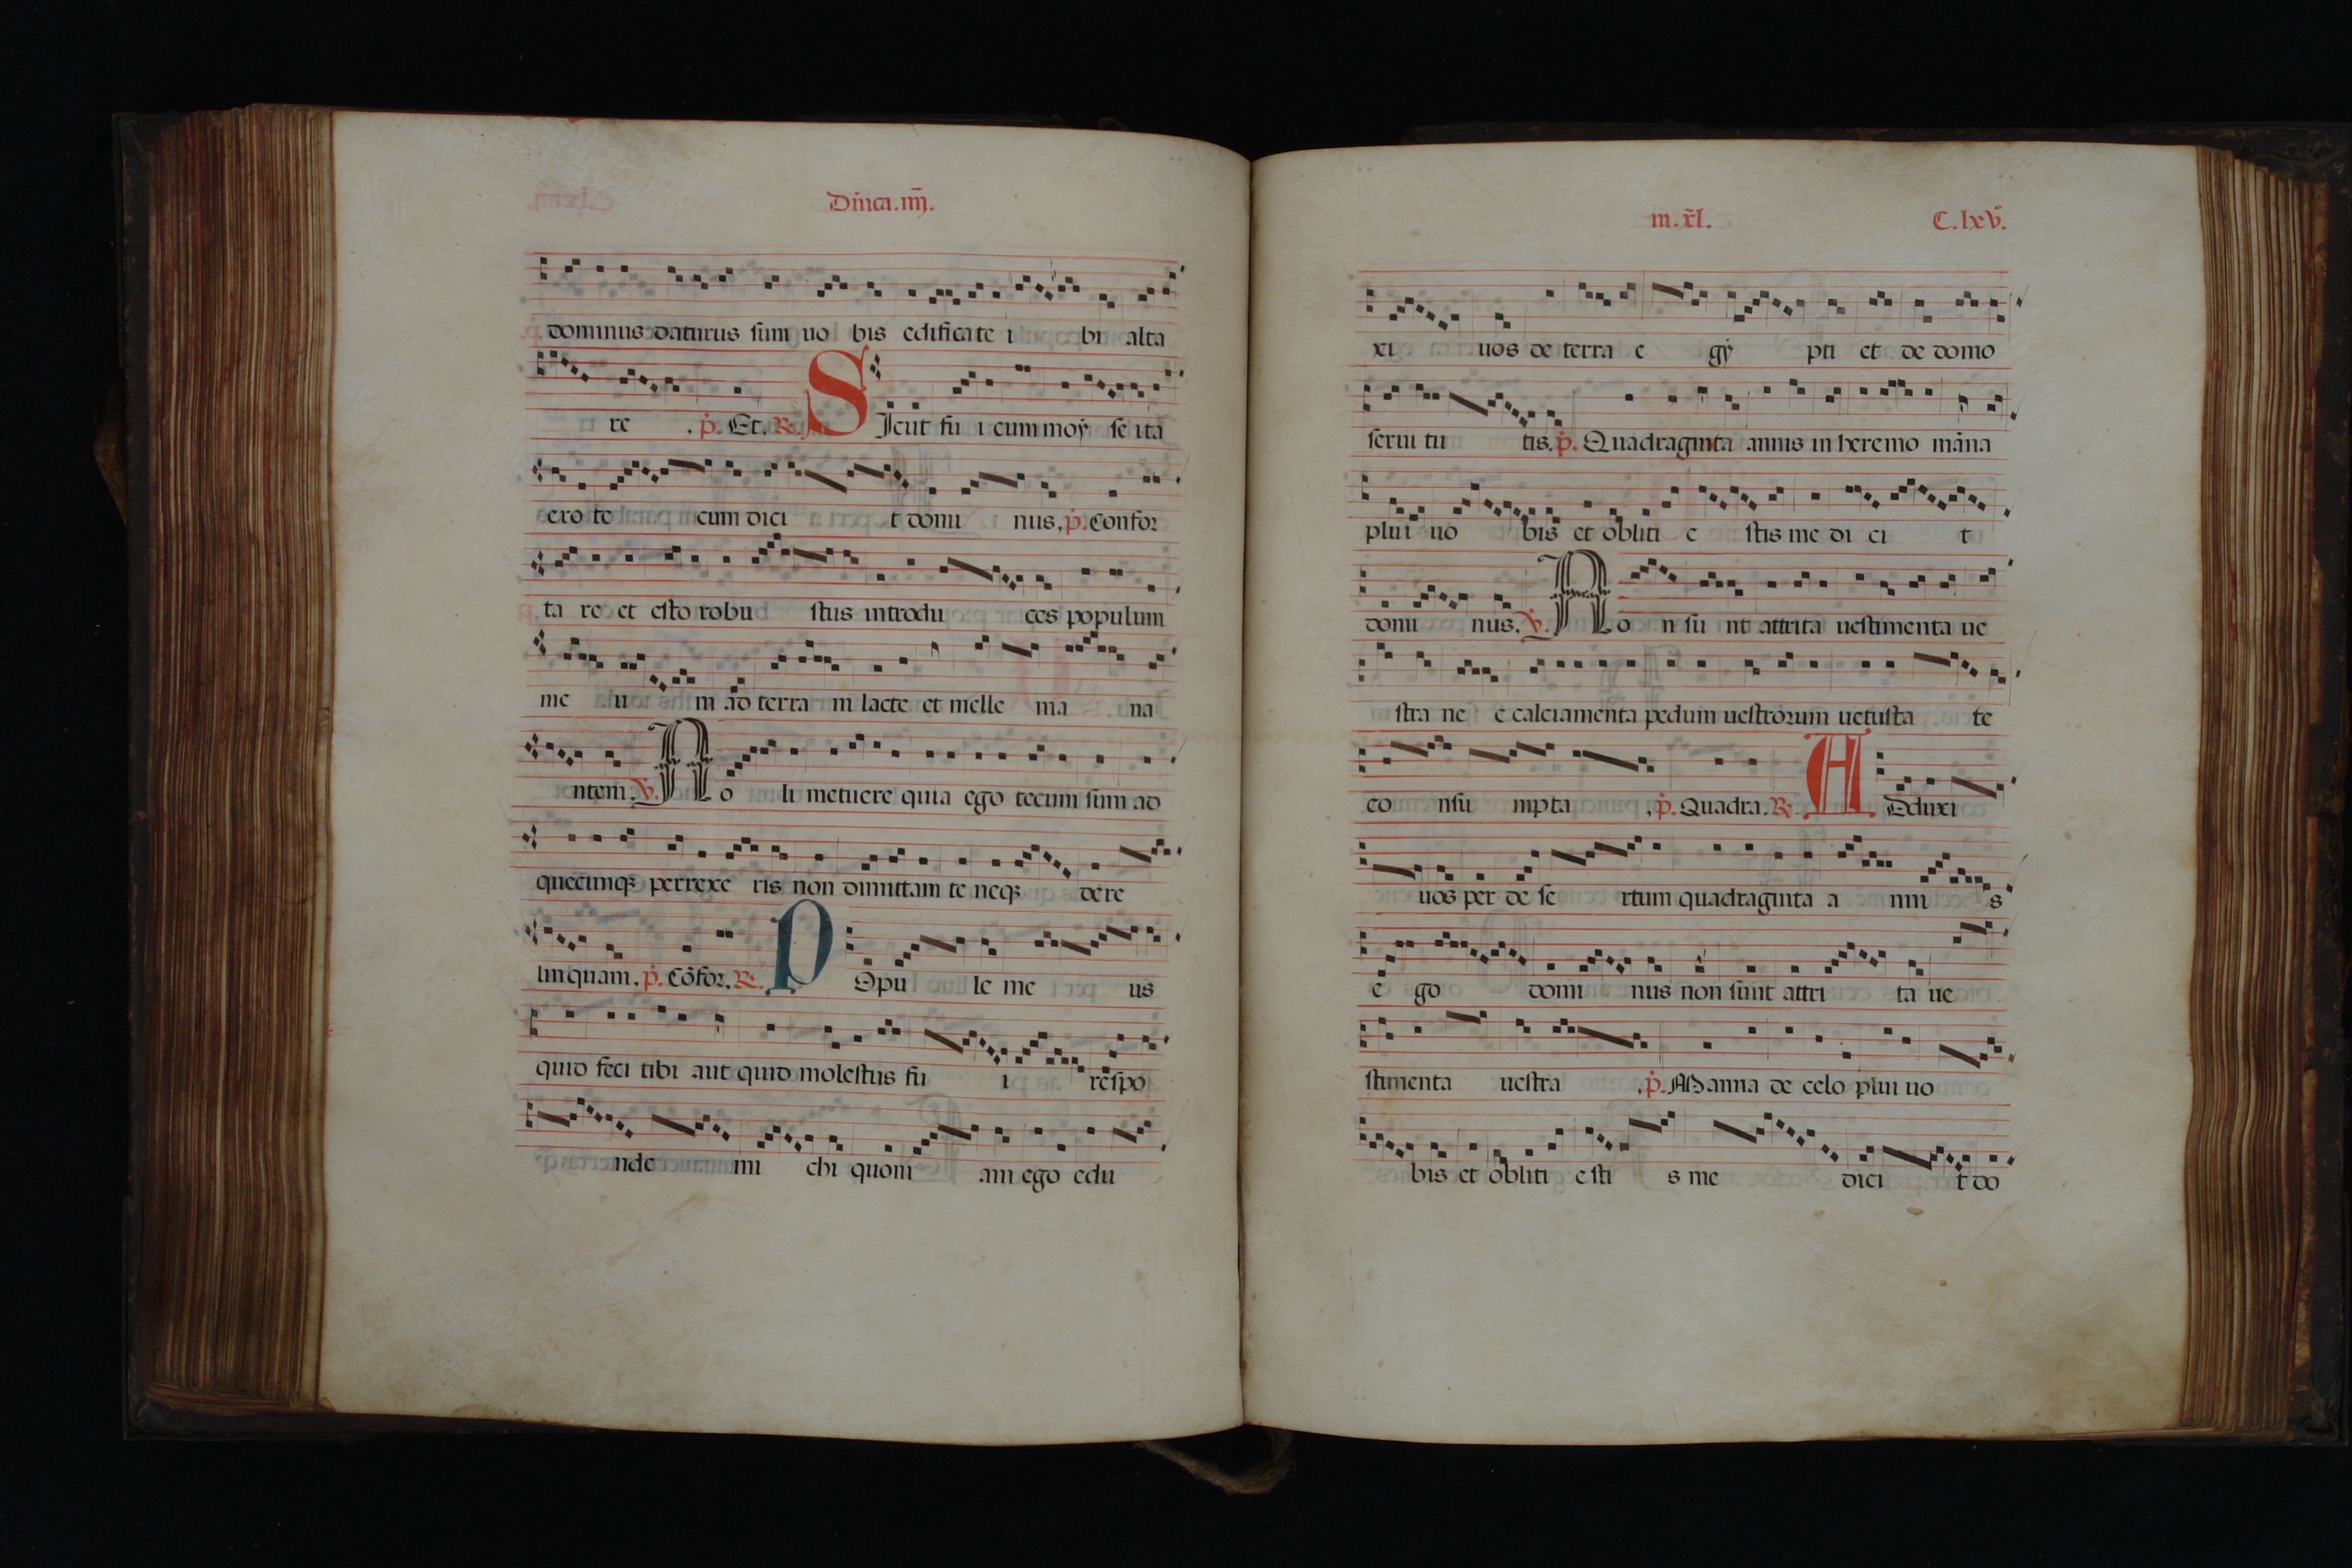 Dn̄ica.iiij.
dominus daturus sum uo bis edificate i bi alta
re . ṗ. Et. R. S Icut fu i cum moẏ se ita
ero te cum dici t domi nus. ṗ. Confor
ta re et esto robu stus introdu ces populum
me u m ad terra m lacte et melle ma na
ntem. V. N o li metuere quia ego tecum sum ad
quecumqꝫ perrexe ris non dimittam te neqꝫ dere
linquam. ṗ. Cōfor. R. P Opu le me us
quid feci tibi aut quid molestus fu i respo
nde mi chi quoni am ego edu
in.xl̄. C.lxv̄.
xi uos de terra e gẏ pti et de domo
serui tu tis. ṗ. Quadraginta annis in heremo māna
plui uo bis et obliti e stis me di ci t
domi nus. V. N o n su nt attrita uestimenta ue
stra ne c calciamenta pedum uestrorum uetusta te
co nsu mpta . ṗ. Quadra. R. A Dduxi
uos per de se rtum quadraginta a nni s
e go domi nus non sunt attri ta ue
stimenta uestra . ṗ. Manna de celo plui uo
bis et obliti e sti s me dici t do